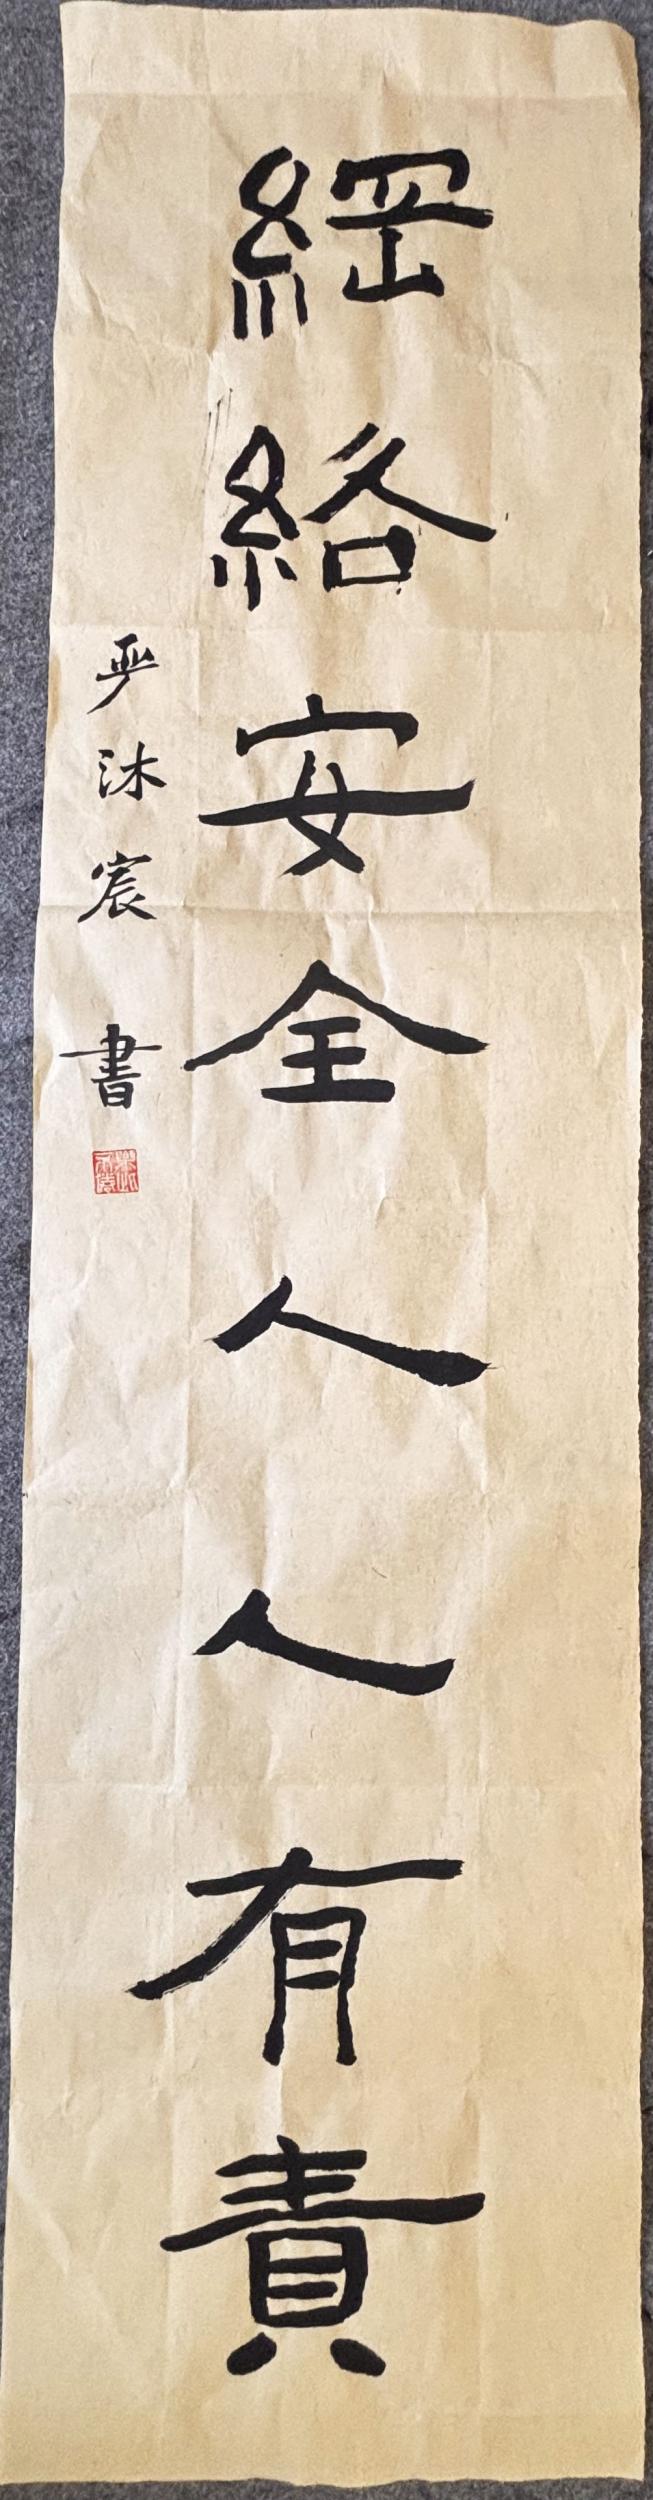 綱絡安全人人有責
严沐宸 書